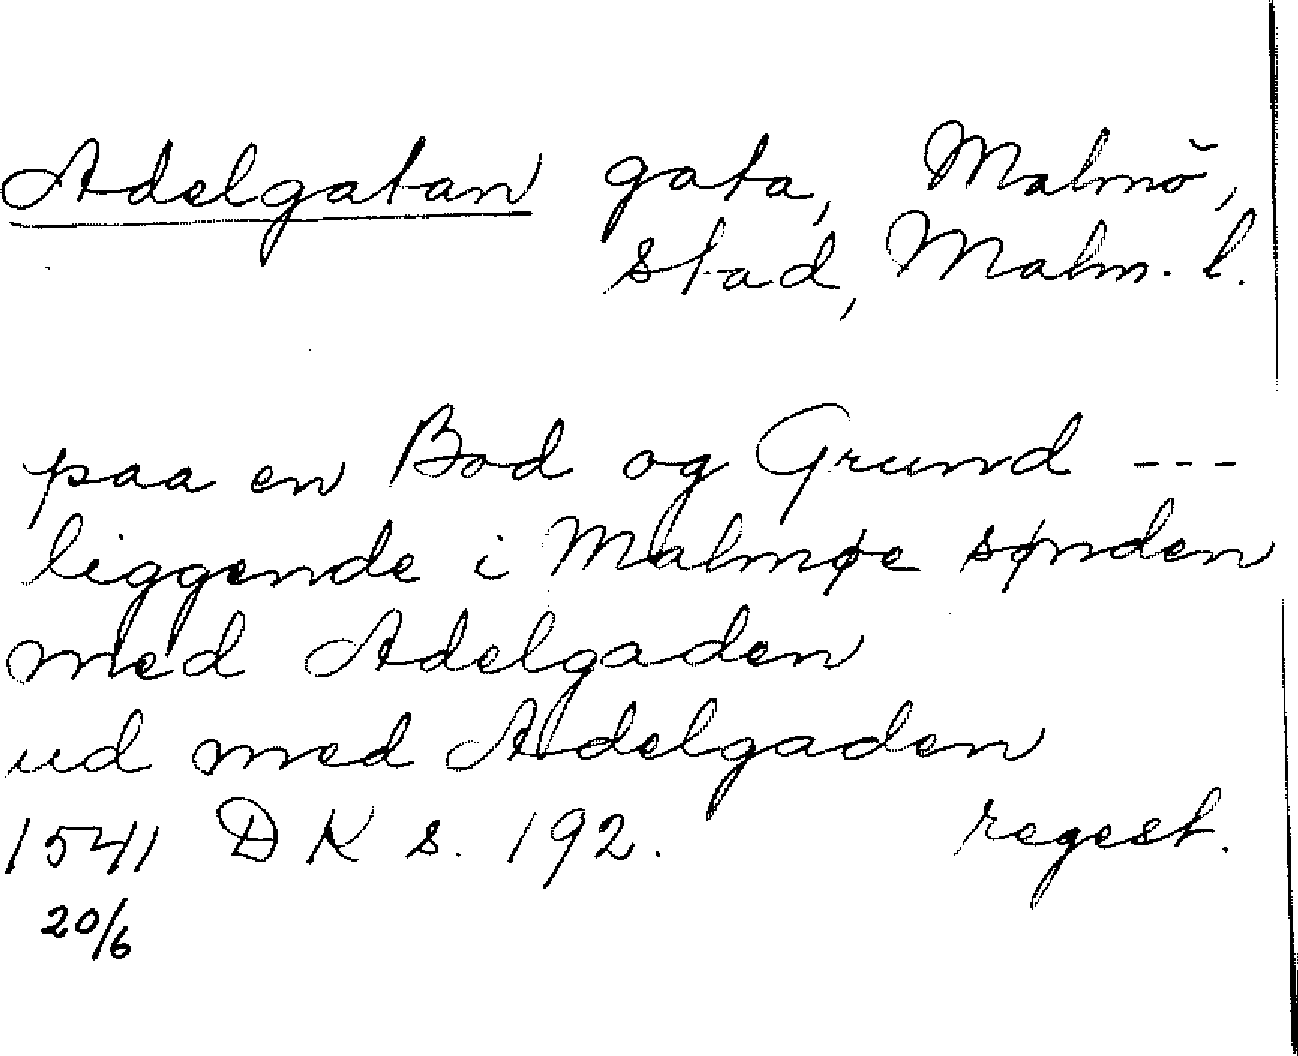 Adelgatan gata, Malmö,
stad, Malm. l.
paa en Bod og Grund ---
liggende i Malmøe sønden
med Adelgaden
ud med Adelgaden
1541 DK s. 192. regest.
20/6